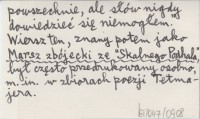 powszechnie, ale słów nigdy
dowiedzieć się niemogłem."
Wiersz ten, znany potem jako
Marsz zbójecki ze "Skalnego Podhala",
był często przedrukowany osobno,
m.in. w zbiorach poezji Tetma-
jera.